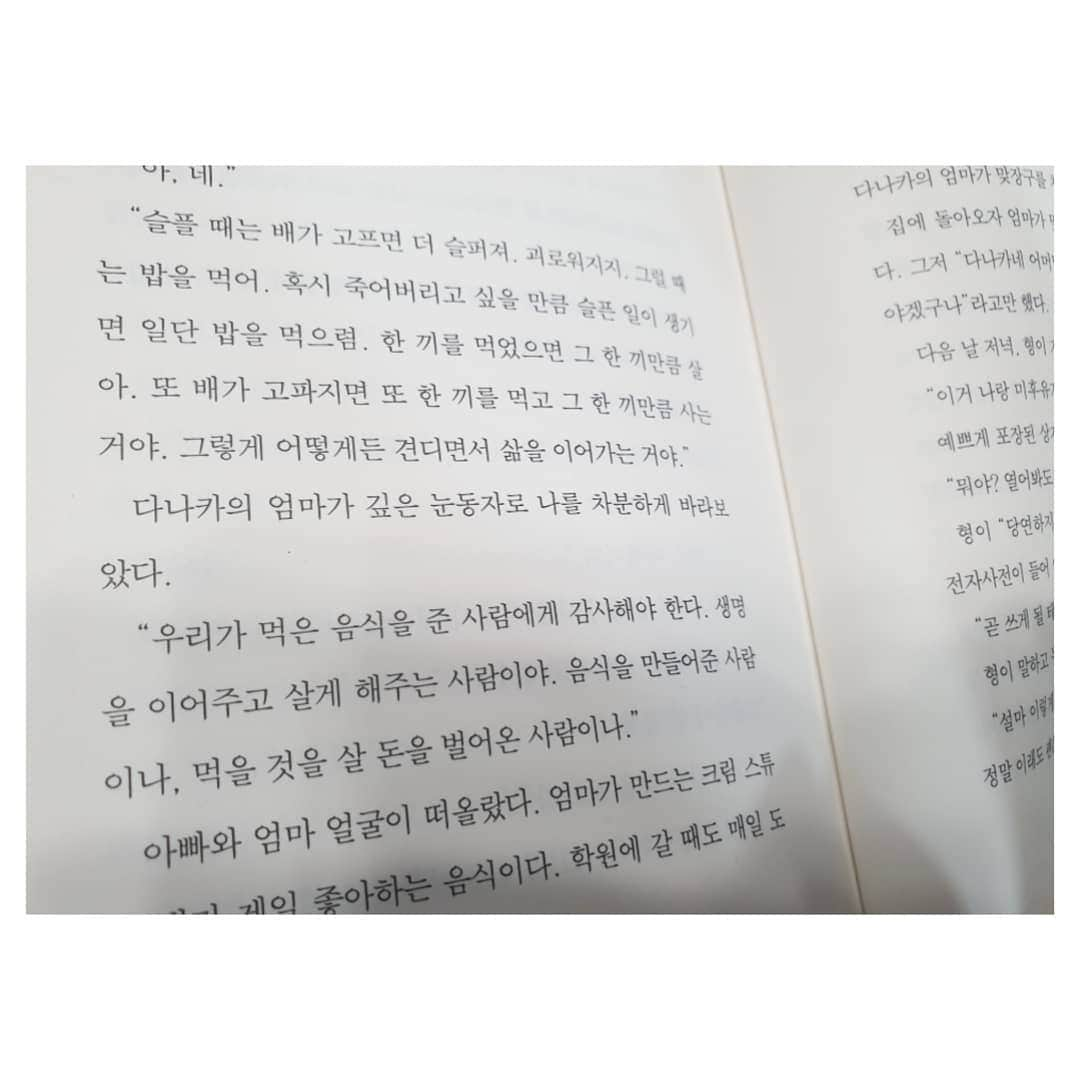 아, 네.”
“슬플 때는 배가 고프면 더 슬퍼져. 괴로워지지. 그럴 때
는 밥을 먹어. 혹시 죽어버리고 싶을 만큼 슬픈 일이 생기
면 일단 밥을 먹으렴. 한 끼를 먹었으면 그 한 끼만큼 살
아. 또 배가 고파지면 또 한 끼를 먹고 그 한 끼만큼 사는
거야. 그렇게 어떻게든 견디면서 삶을 이어가는 거야.”
다나카의 엄마가 깊은 눈동자로 나를 차분하게 바라보
았다.
“우리가 먹은 음식을 준 사람에게 감사해야 한다. 생명
을 이어주고 살게 해주는 사람이야. 음식을 만들어준 사람
이나, 먹을 것을 살 돈을 벌어온 사람이나.”
아빠와 엄마 얼굴이 떠올랐다. 엄마가 만드는 크림 스튜
제일 좋아하는 음식이다. 학원에 갈 때도 매일 도
다나카의 엄마가 맞장구를
집에 돌아오자 엄마가
다. 그저 “다나카네 어머
야겠구나”라고만 했다.
다음 날 저녁, 형이
“이거 나랑 미후유
예쁘게 포장된 상
“뭐야? 열어봐도
형이 “당연하지
전자사전이 들어
“곧 쓰게 될
형이 말하고
“설마 이렇게
정말 이래도